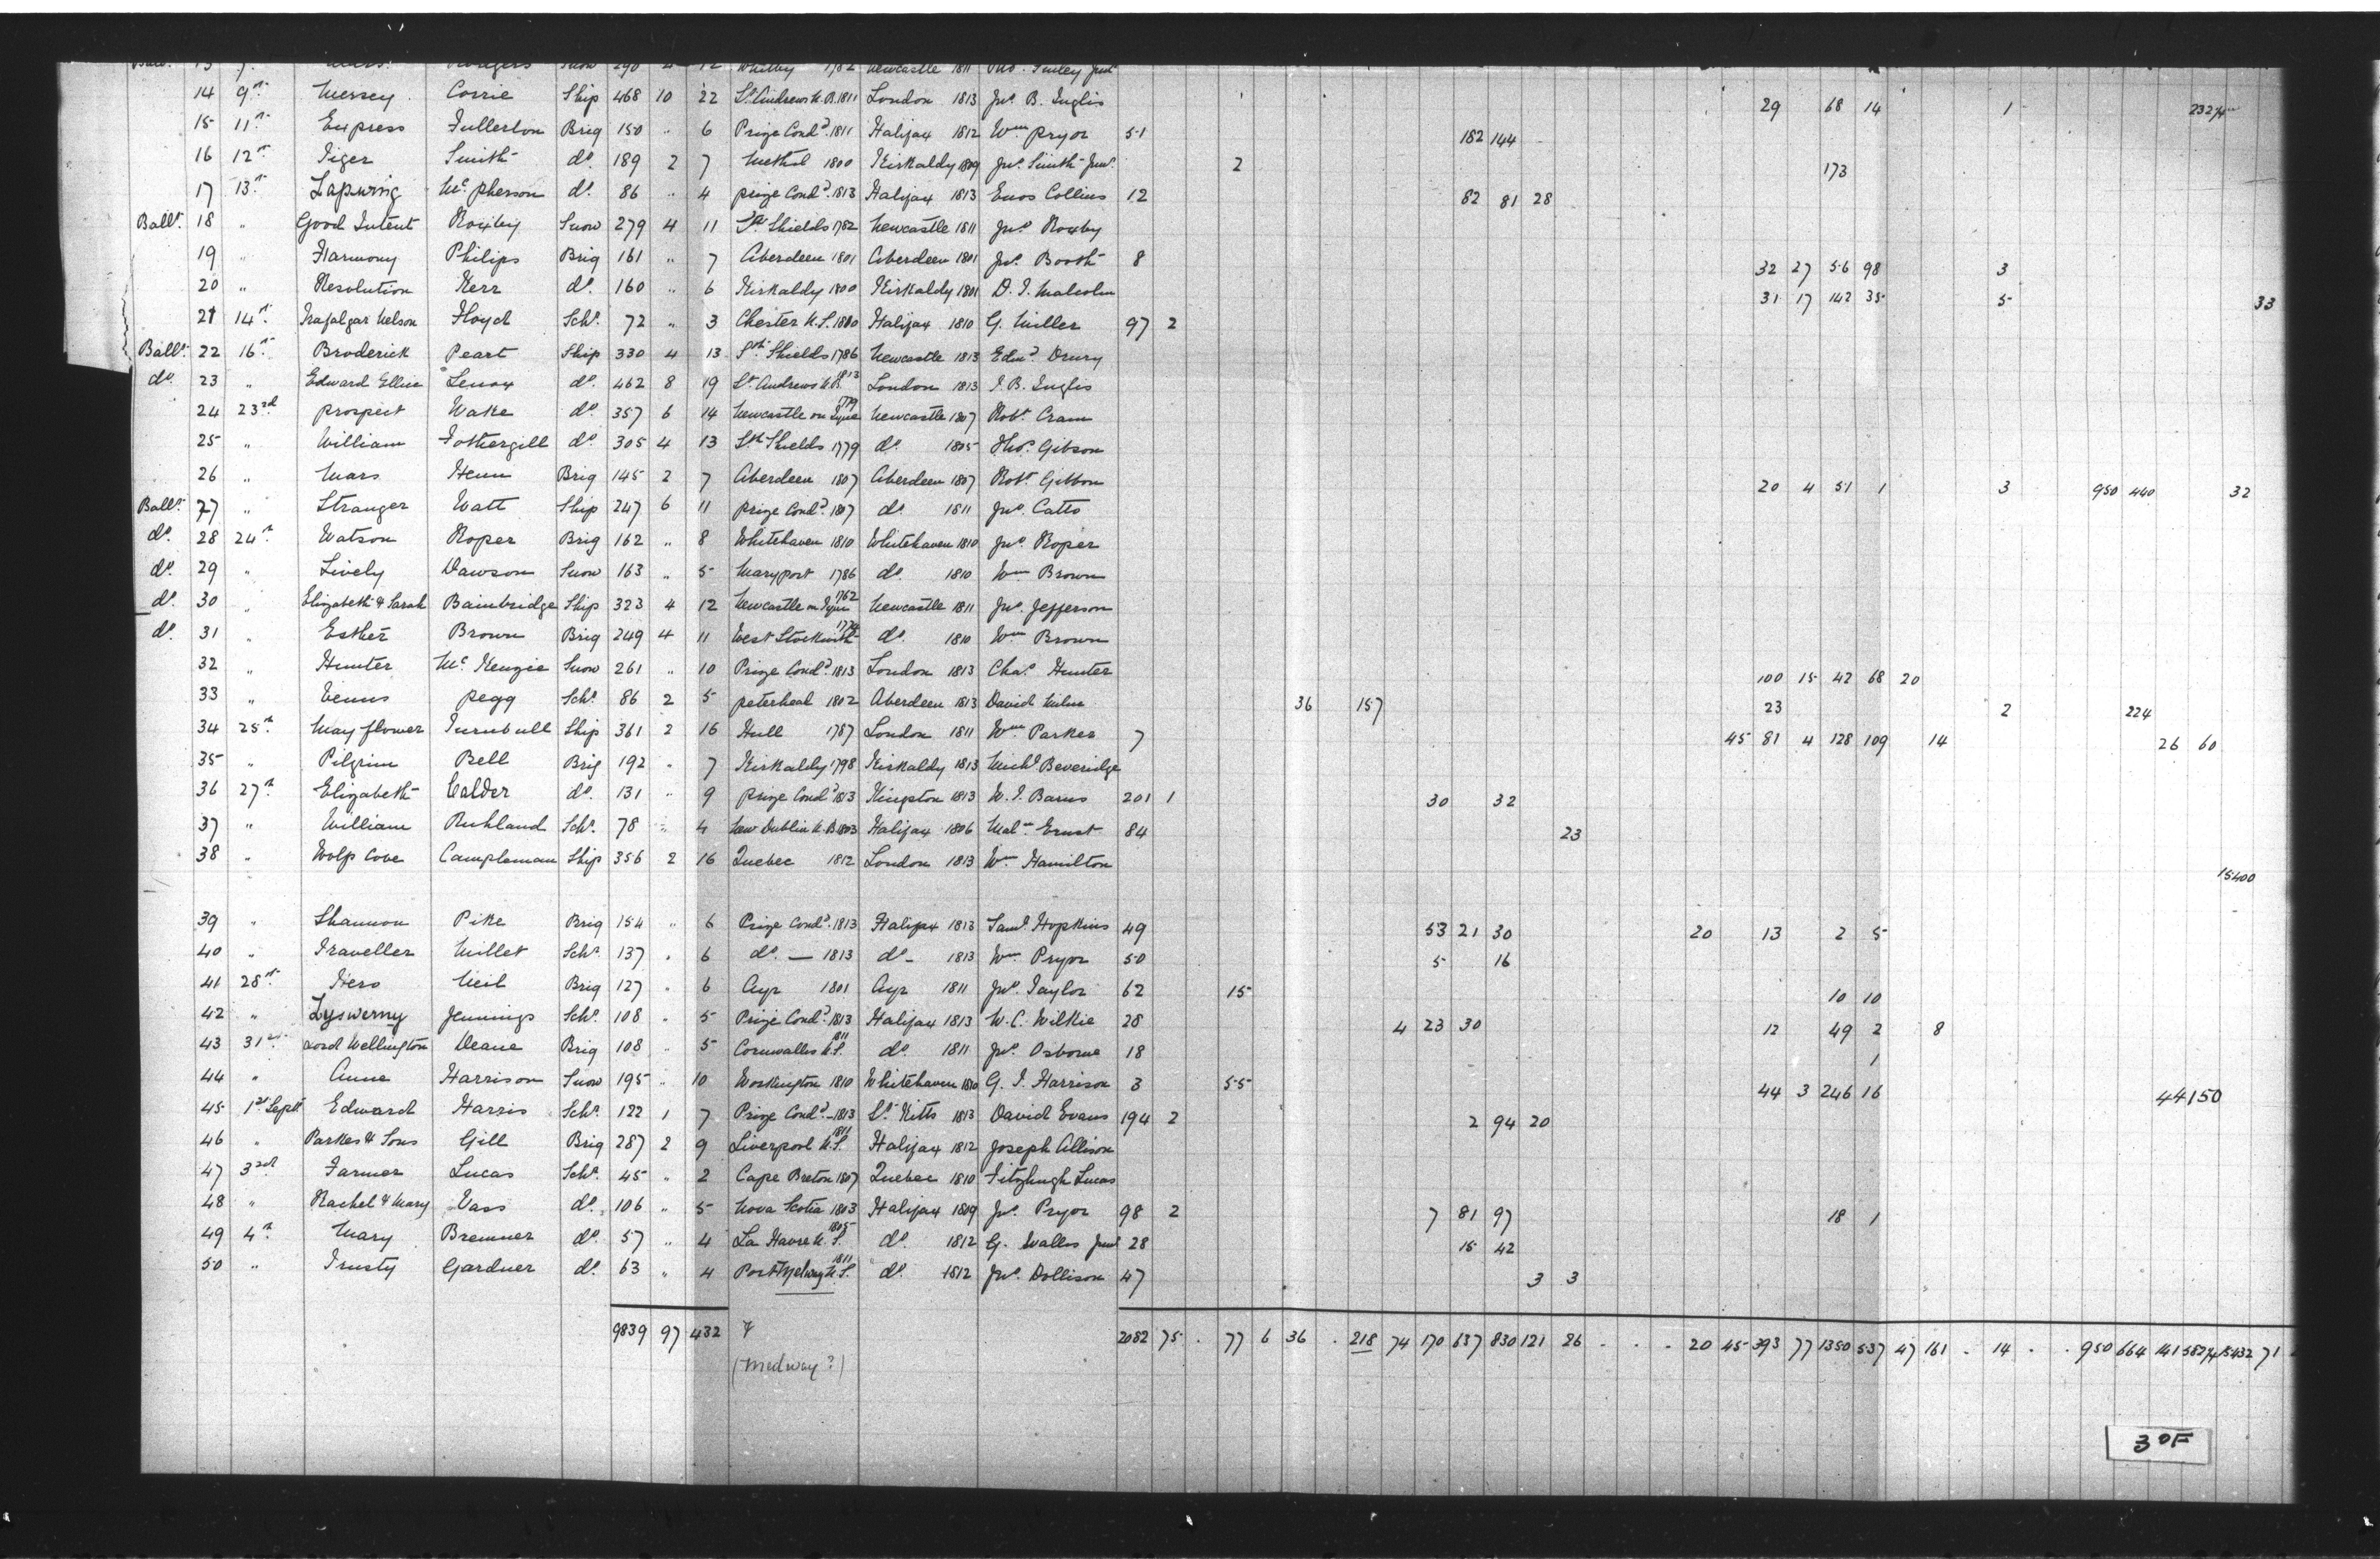 Ball. 13 7. Rodgers Snow 290 4 12 Whitby 1782 Newcastle 1811
14 9th Mersey Corrie Ship 468 10 22 St Andrews N.B. 1811 London 1813 Jno. B. Inglis 29 68 14 1 232
15 11th Express Fullerton Brig 150 " 6 Prize Cond. 1811 Halifax 1812 Wm Pryor 51 182 144
16 12th Tiger Smith do. 189 2 7 Methil 1800 Kirkaldy 1809 Jno. Smith Junr. 2 173
17 13th Lapwing Mc pherson do. 86 " 4 prize Cond. 1813 Halifax 1813 Enos Collins 12 82 81 28
Ballt. 18 " Good Intent Roxby Snow 279 4 11 Sth Shields 1782 Newcastle 1811 Jno. Roxby
19 " Harmony Philips Brig 161 " 7 Aberdeen 1801 Aberdeen 1801 Jno. Booth 8 32 27 56 98 3
20 " Resolution Kerr do. 160 " 6 Kirkaldy 1800 Kirkaldy 1801 D. I. Malcolm 31 17 142 35 5 33
21 14th Trafalgar Nelson Floyd Schr. 72 " 3 Chester N.S. 1810 Halifax 1810 G. Miller 97 2
Ballt. 22 16th Broderick Peart Ship 330 4 13 Sth Shields 1786 Newcastle 1813 Edwd. Drury
do. 23 " Edward Ellice Lenox do. 462 8 19 St Andrews N.B. 1813 London 1813 I. B. Inglis
24 23rd prospect Wake do. 357 6 14 Newcastle on Tyne 1779 Newcastle 1807 Robt. Cram
25 " William Fothergill do. 305 4 13 Sth Shields 1779 do. 1805 Thos. Gibson
26 " Mars Henn Brig 145 2 7 Aberdeen 1807 Aberdeen 1807 Robt. Gibbon 20 4 51 1 3 950 440 32
Ballt. 27 " Stranger Watt Ship 247 6 11 prize Cond. 1807 do. 1811 Jno. Catto
do. 28 24th Watson Roper Brig 162 " 8 Whitehaven 1810 Whitehaven 1810 Jno. Roper
do. 29 " Lively Dawson Snow 163 " 5 Maryport 1786 do. 1810 Wm Brown
do. 30 " Elizabeth & Sarah Bainbridge Ship 323 4 12 Newcastle on Tyne 1762 Newcastle 1811 Jno. Jefferson
do. 31 " Esther Brown Brig 249 4 11 West Stockwith 1774 do. 1810 Wm Brown
32 " Hunter Mc Kenzie Snow 261 " 10 Prize Cond. 1813 London 1813 Chas. Hunter 100 15 42 68 20
33 " Venus pegg Schr. 86 2 5 peterhead 1802 Aberdeen 1813 David Milne 36 157 23 2 224
34 25th May flower Turnbull Ship 361 2 16 Hull 1787 London 1811 Wm Parker 7 45 81 4 128 109 14 26 60
35 " Pilgrim Bell Brig 192 " 7 Kirkaldy 1798 Kirkaldy 1813 Michl. Beveridge
36 27th Elizabeth Calder do. 131 " 9 prize Cond. 1813 Kingston 1813 W. I. Barns 201 1 30 32
37 " William Ruhland Schr. 78 " 4 New Dublin N.B. 1803 Halifax 1806 Ernst 84 23
38 " Wolp Cove Campleman Ship 356 2 16 Quebec 1812 London 1813 Wm Hamilton 15400
39 " Shannon Pike Brig 154 " 6 Prize Cond. 1813 Halifax 1813 Saml. Hopkins 49 53 21 30 20 13 2 5
40 " Traveller Millet Schr. 137 " 6 do. — 1813 do - 1813 Wm Pryor 50 5 16
41 28th Hero Neil Brig 127 " 6 Ayr 1801 Ayr 1811 Jno. Taylor 62 15 10 10
42 " Zyswerny Jennings Schr. 108 " 5 Prize Cond. 1813 Halifax 1813 W. C. Wilkie 28 4 23 30 12 49 2 8
43 31st Lord Wellington Deane Brig 108 " 5 Cornwallis N.S. 1811 do. 1811 Jno. Osborne 18 1
44 " Anne Harrison Snow 195 " 10 Workington 1810 Whitehaven 1810 G. I. Harrison 3 55 44 3 246 16 44 150
45 1st Septr Edward Harris Schr. 122 1 7 Prize Cond. - 1813 St. Kitts 1813 David Evans 194 2 2 94 20
46 " Parker & Sons Gill Brig 287 2 9 Liverpool N.S. 1811 Halifax 1812 Joseph Allison
47 3rd Farmer Lucas Schr. 45 " 2 Cape Breton 1807 Quebec 1810 Fitzhugh Lucas
48 " Rachel & Mary Vass do. 106 " 5 Nova Scotia 1803 Halifax 1809 Jno. Pryor 98 2 7 81 97 18 1
49 4th Mary Bremner do. 57 " 4 La Havre N.S. 1805 do. 1812 G. Wallis Junr 28 15 42
50 " Trusty Gardner do. 63 " 4 Port Melway N.S. 1811 do. 1812 Jno. Dollison 47 3 3
9839 97 432 2082 75 . 77 6 36 . 218 74 170 637 830 121 26 . . . 20 45 393 77 1350 537 47 161 . 14 . . 950 664 141 15432 71
(Medway?)
30F